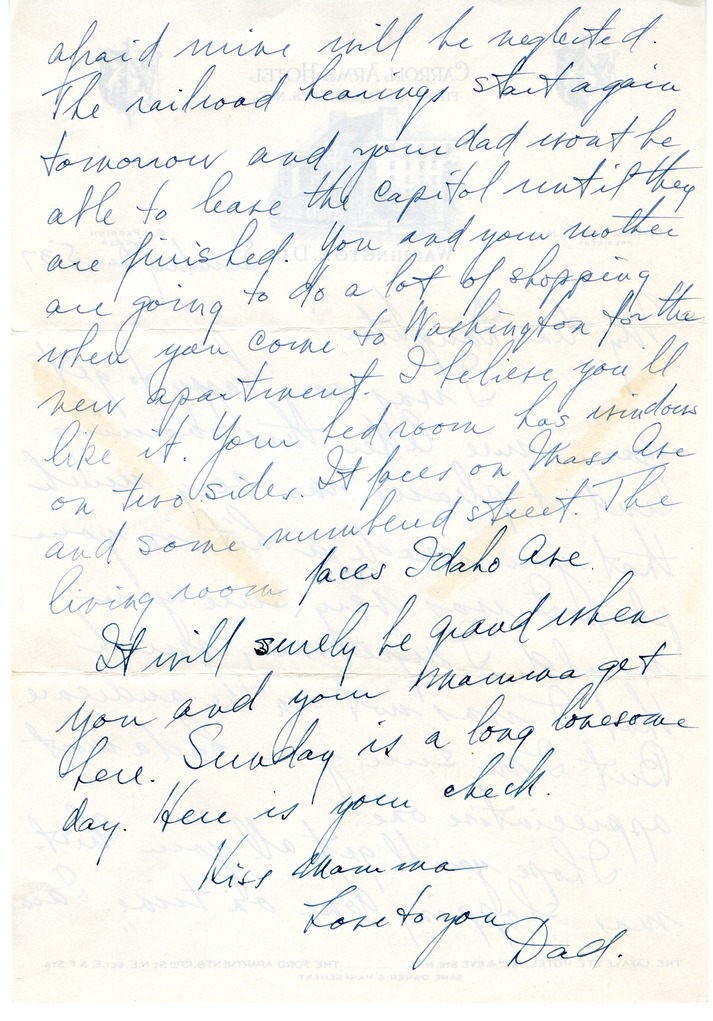 afraid mine will be neglected.
The railroad hearings start again
tomorrow and your dad wont be
able to leave the capitol until they
are finished. You and your mother
are going to do a lot of shopping
when you come to Washington for the
new apartment. I believe you'll
like it. Your bed room has windows
on two sides. It faces on Mass Ave
and some numbered street. The
living room faces Idaho Ave.
It will surely be grand when
you and your mamma get
here. Sunday is a long lonesome
day. Here is your check.
Kiss Mamma
Love to you
Dad.